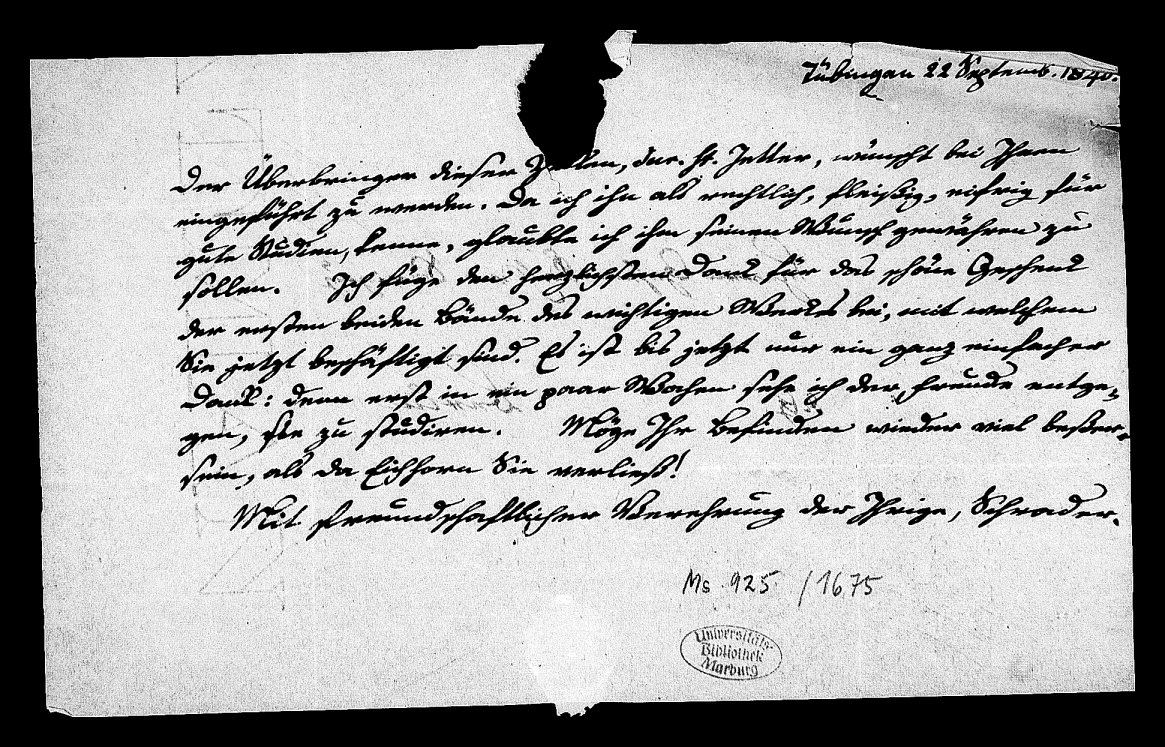 Tübingen 22 Septemb. 1840.
Der Überbringer dieser Zeilen, der. H. Jetter, wünscht bei Ihnen
eingeführt zu werden. Da ich ihn als rechtlich, fleißig, eifrig für
gute Studien, kenne, glaubte ich ihm seinen Wunsch gewähren zu
sollen. Ich füge den herzlichsten Dank für das schöne Geschenk
der ersten beiden Bände des wichtigen Werkes bei, mit welchem
Sie jetzt beschäftigt sind. Es ist bis jetzt nur ein ganz einfacher
Dank: denn erst in ein paar Wochen sehe ich der Freude entge-
gen, sie zu studiren. Möge Ihr Befinden wieder viel besser
sein, als da Eichhorn Sie verließ!
Mit freundschaftlicher Verehrung der Ihrige, Schrader.
Ms 925 /1675
Universitäts-
Bibliothek
Marburg